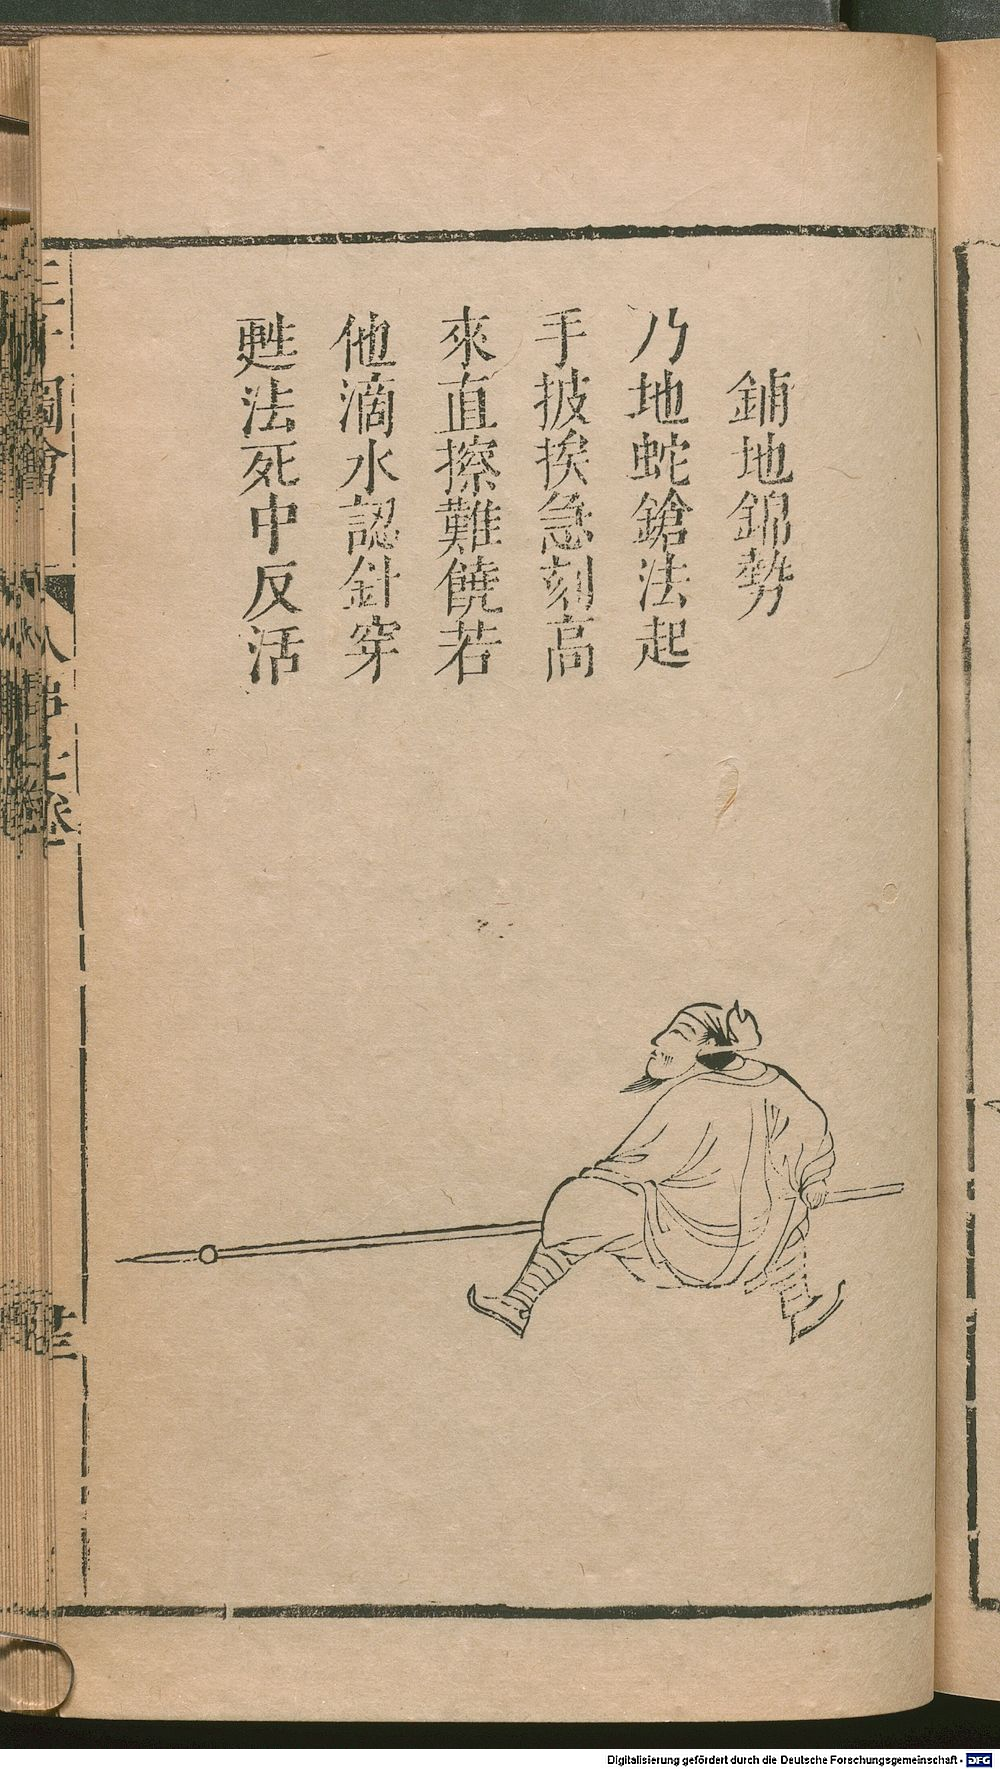 鋪地錦勢
乃地蛇鎗法起
手披挨急刻高
來直擦難饒若
他滴水認針穿
甦法死中反活
三才圖會
人事七卷
Digitalisierung gefördert durch die Deutsche Forschungsgemeinschaft - DFG